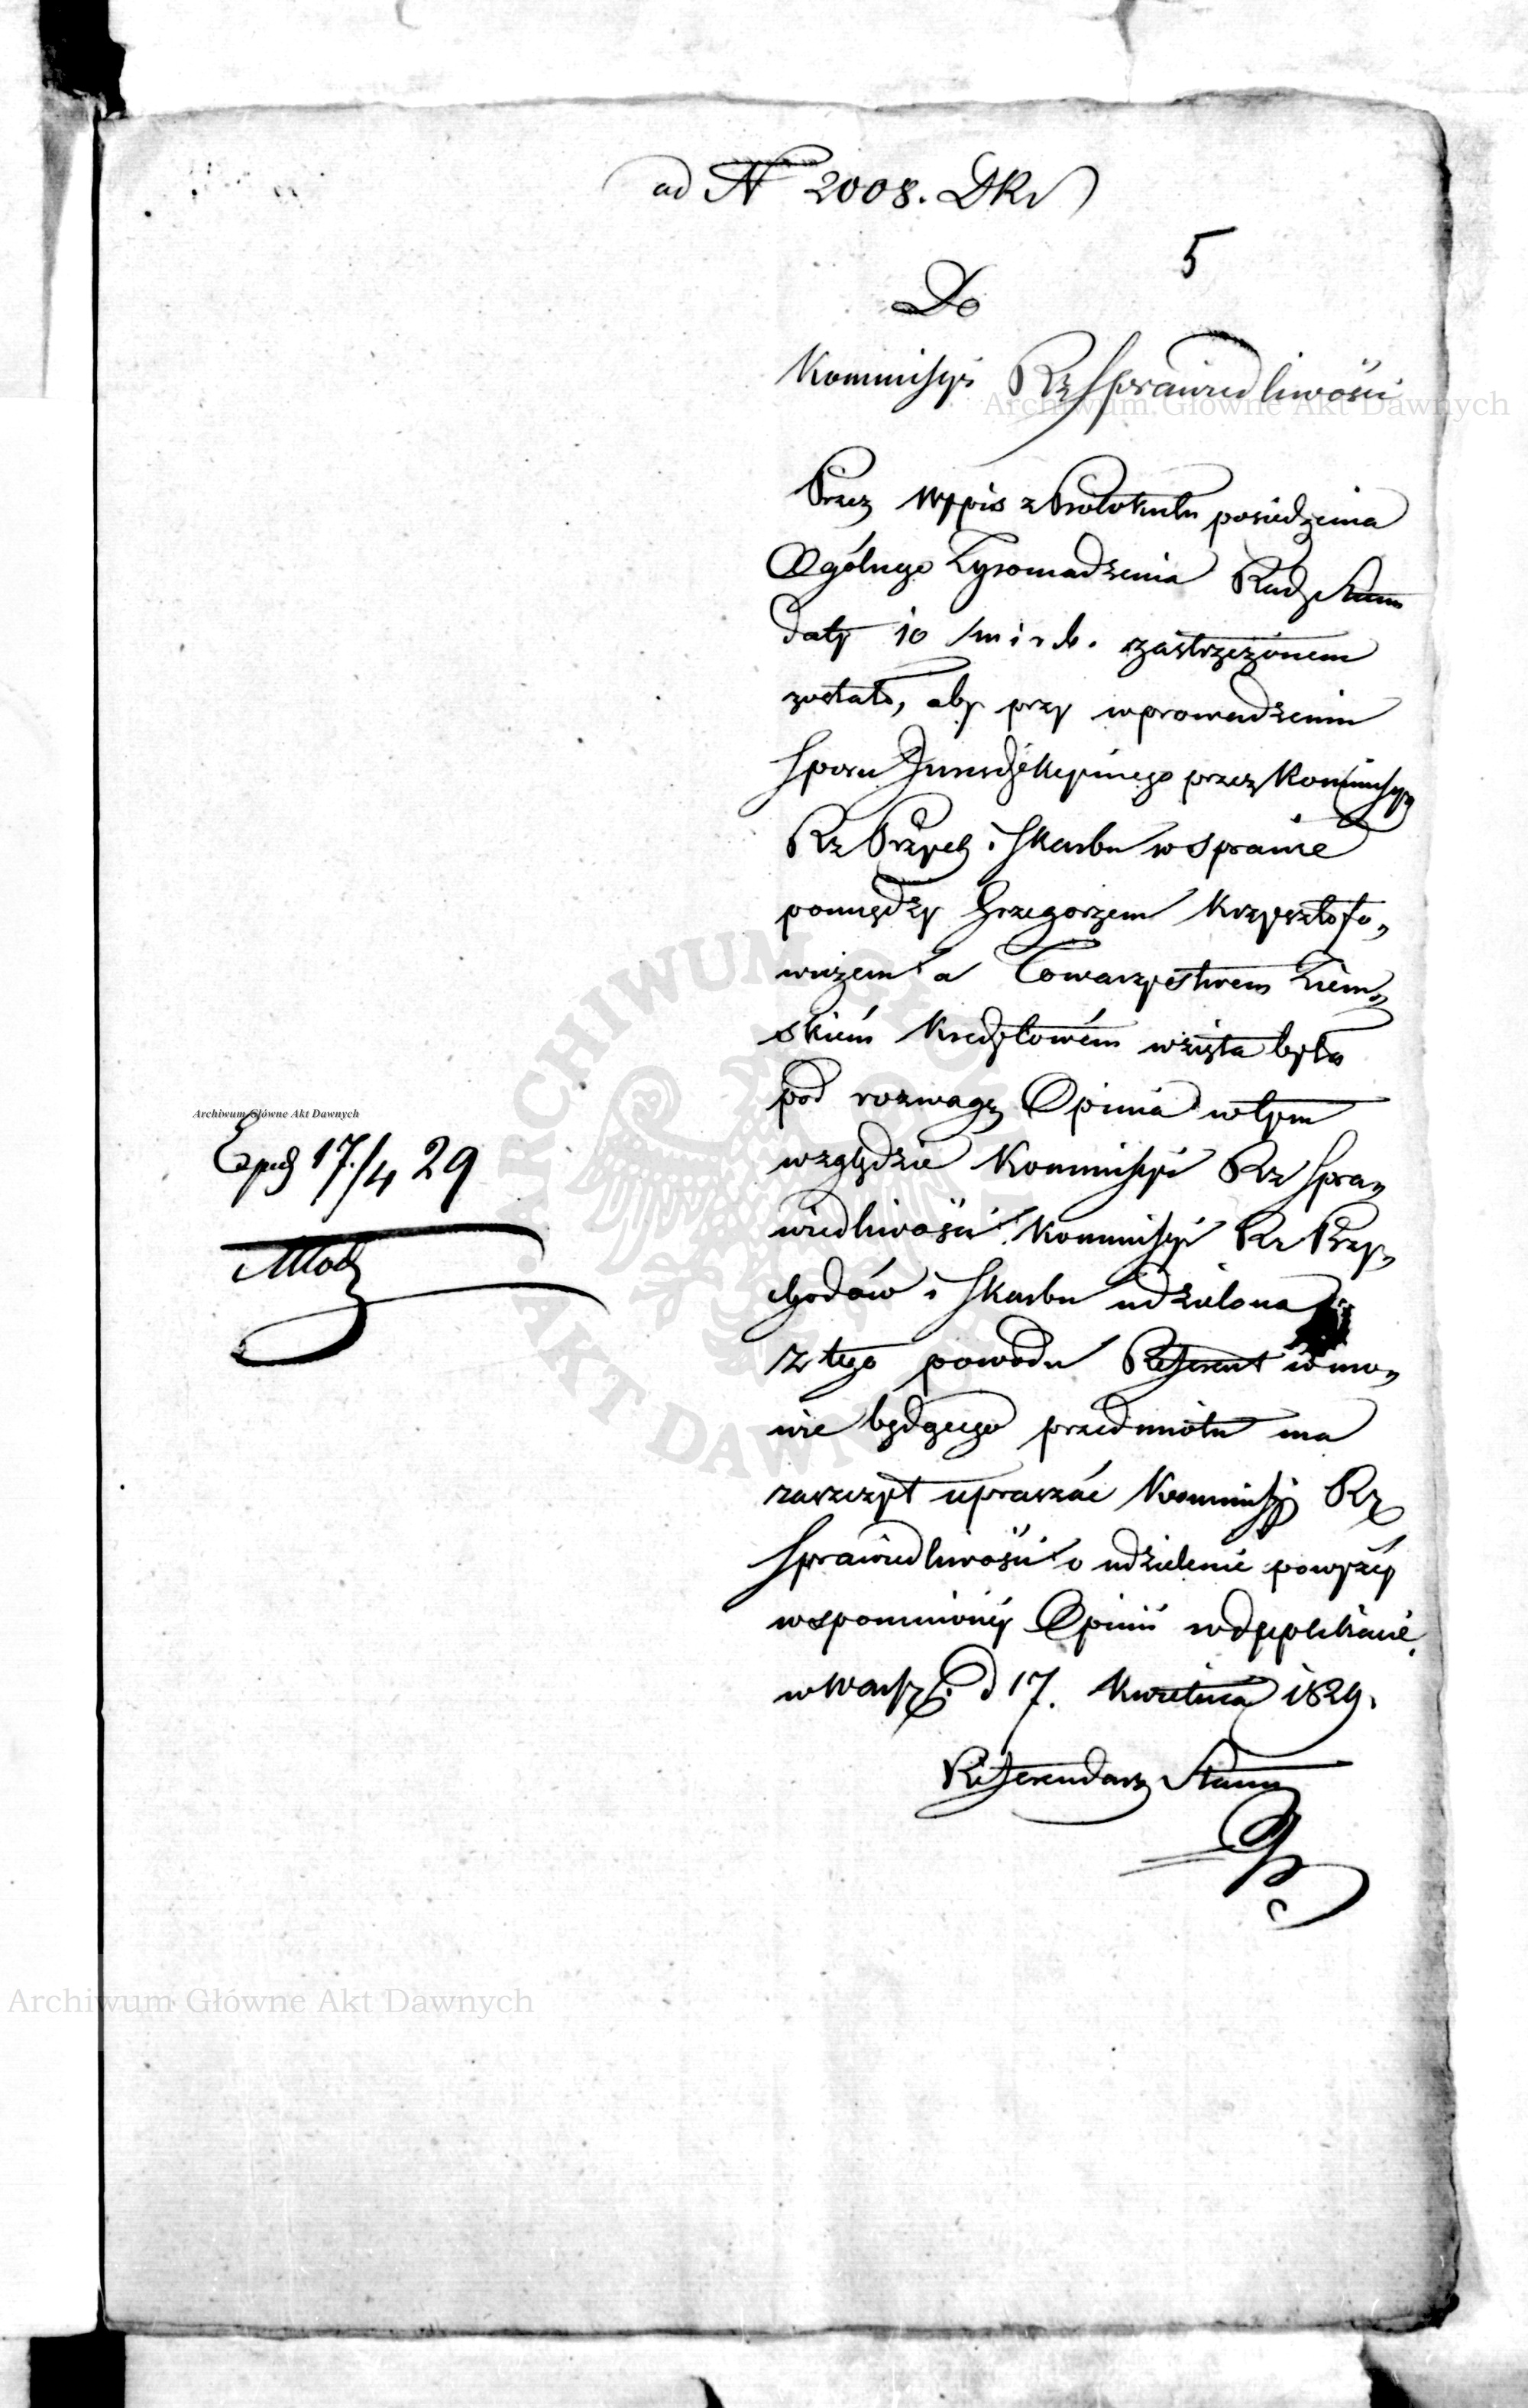 ad N 2008. DKr
5
Do
Kommissyi Rz Sprawiedliwości
Przez Wypis z Protokułu posiedzenia
Ogólnego Zgromadzenia Rady Stanu
daty 10 m i r b. zastrzeżonem
zostało, aby przy wprowadzeniu
Sporu Jurisdykcyinego przez Kommissyą
Rz Przych i Skarbu w sprawie
pomiędzy Grzegorzem Krzysztofo-
wiczem a Towarzystwem Ziem-
skiém Kredytowém wzięta była
pod rozwagę Opinia w tym
względzie Kommissyi Rz Spra-
wiedliwości Kommissyi Rz Przy-
chodów i Skarbu udzielona
z tego powodu Referent w mo-
wie będącego przedmiotu ma
zaszczyt upraszać Kommissyi Rz
Sprawiedliwości o udzielenie powyżéy
wspomnionéy Opinii w dupplikacie.
w Warsz. d 17. Kwietnia 1829.
Referendarz Stanu
Exped 17/4 29
Archiwum Główne Akt Dawnych
Archiwum Główne Akt Dawnych
Archiwum Główne Akt Dawnych
ARCHIWUM GŁÓWNE AKT DAWNYCH